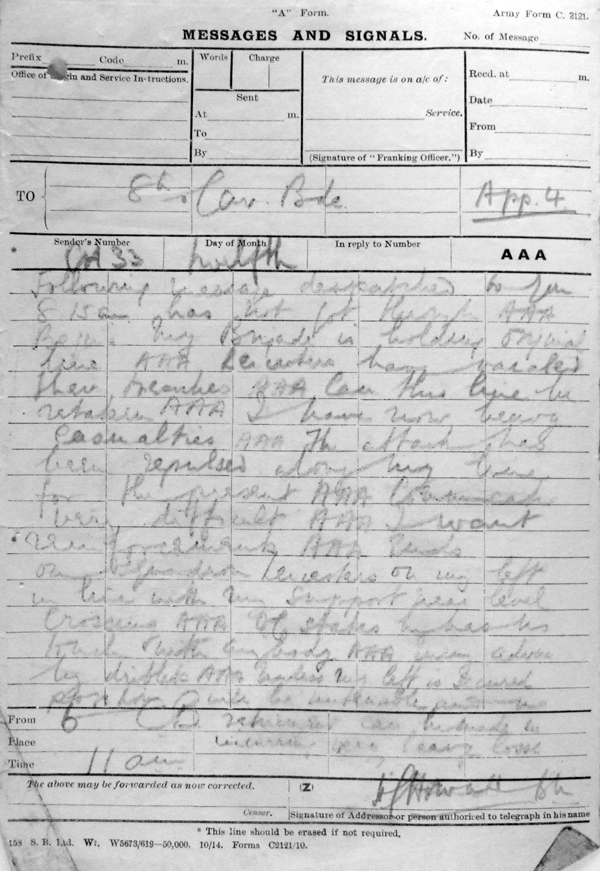 "A" Form.
Army Form C. 2121.
MESSAGES AND SIGNALS.
No. of Message
Prefix Code m.
Words Charge
This message is on a/c of:
Recd. at m.
Office of Origin and Service Instructions.
Sent
Date
At m.
Service.
From
To
By
(Signature of "Franking Officer.")
By
TO 8th Cav. Bde. App. 4
Sender's Number Day of Month In reply to Number AAA
33 twelfth
Following message despatched to you
8 15 am has not got through AAA
My Brigade is holding original
line AAA Leicesters have vacated
their trenches AAA Can this line be
retaken AAA I have now heavy
casualties AAA The attack has
been repulsed along my line
for the present AAA
very difficult AAA I want
reinforcements AAA
Squadron Leicesters on my left
in line with my support near level
crossing AAA OC states he has no
touch with anybody AAA
by driblets AAA Unless my left is secured
will be untenable
From 6 CB can be made
Place incurring heavy losses
Time 11 am
The above may be forwarded as now corrected. (Z)
Censor. Signature of Addressor or person authorised to telegraph in his name
* This line should be erased if not required.
158 S. B. Ltd. Wt. W5673/619—50,000. 10/14. Forms C2121/10.